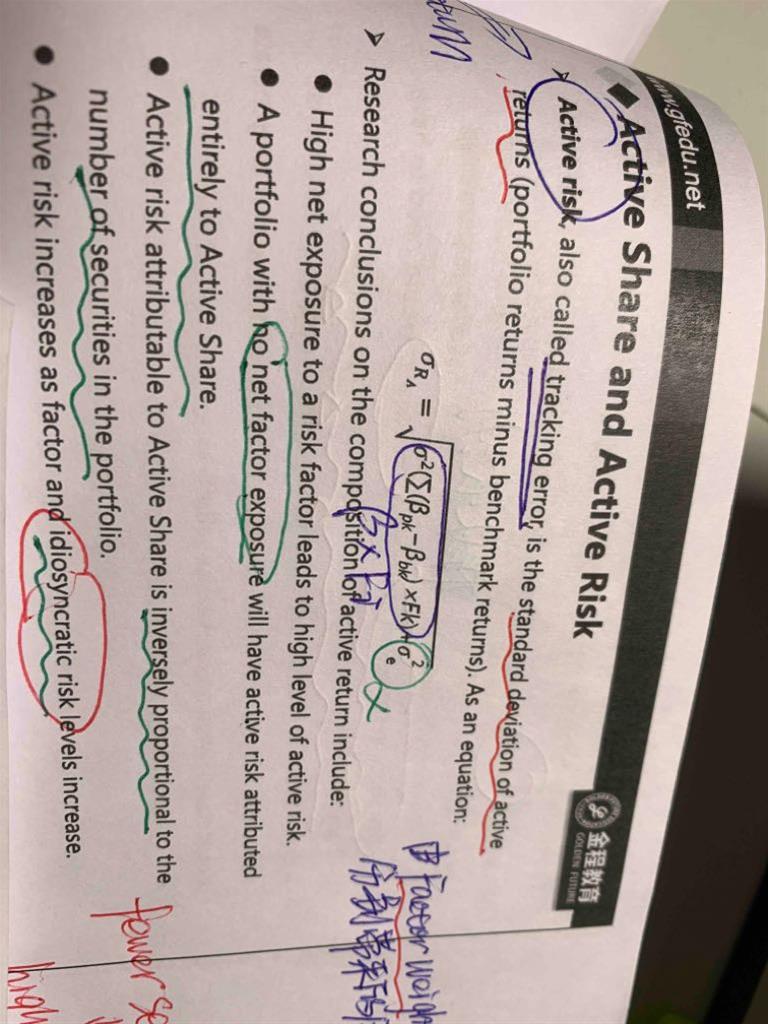 www.gfedu.net
金程教育
GOLDEN FUTURE
◆ Active Share and Active Risk
➢ Active risk, also called tracking error, is the standard deviation of active
returns (portfolio returns minus benchmark returns). As an equation:
σ_{R_A} = √(σ²(∑(β_{pk} − β_{bk}) × Fk) + σ²_e)
α
β×
由Factor weigh
➢ Research conclusions on the composition of active return include:
● High net exposure to a risk factor leads to high level of active risk.
● A portfolio with no net factor exposure will have active risk attributed
entirely to Active Share.
● Active risk attributable to Active Share is inversely proportional to the
number of securities in the portfolio.
fewer se
● Active risk increases as factor and idiosyncratic risk levels increase.
high